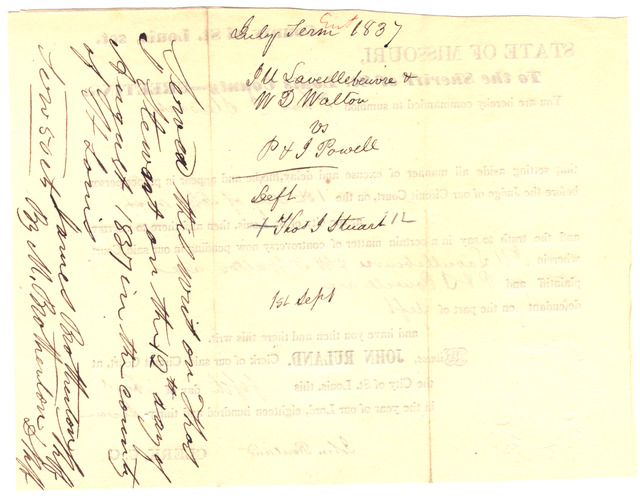 July Term 1837
J M Laveillebeuvre &
W D Walton
vs
P & J Powell
Deft
+ Thos J Stuart 12
1st Sept
Served this writ on Thos
J Stewart on the 12th day of
August 1837 in the county
of St Louis
Serv 50 cts James Brotherton Shff
By M. Brotherton D Shff
STATE OF MISSOURI,
To the Sheriff
You are hereby commanded to summon
that setting aside all manner of excuse and delay,
before the Judge of our Circuit Court, on the
and the truth to say in a certain matter of controversy now pending in our
wherein
plaintiff and
defendant on the part of deft
and have you then and there this writ.
Witness, JOHN RULAND, Clerk of our said
the City of St. Louis, this
in the year of our Lord, eighteen hundred and thirty-
John Ruland
CLERK